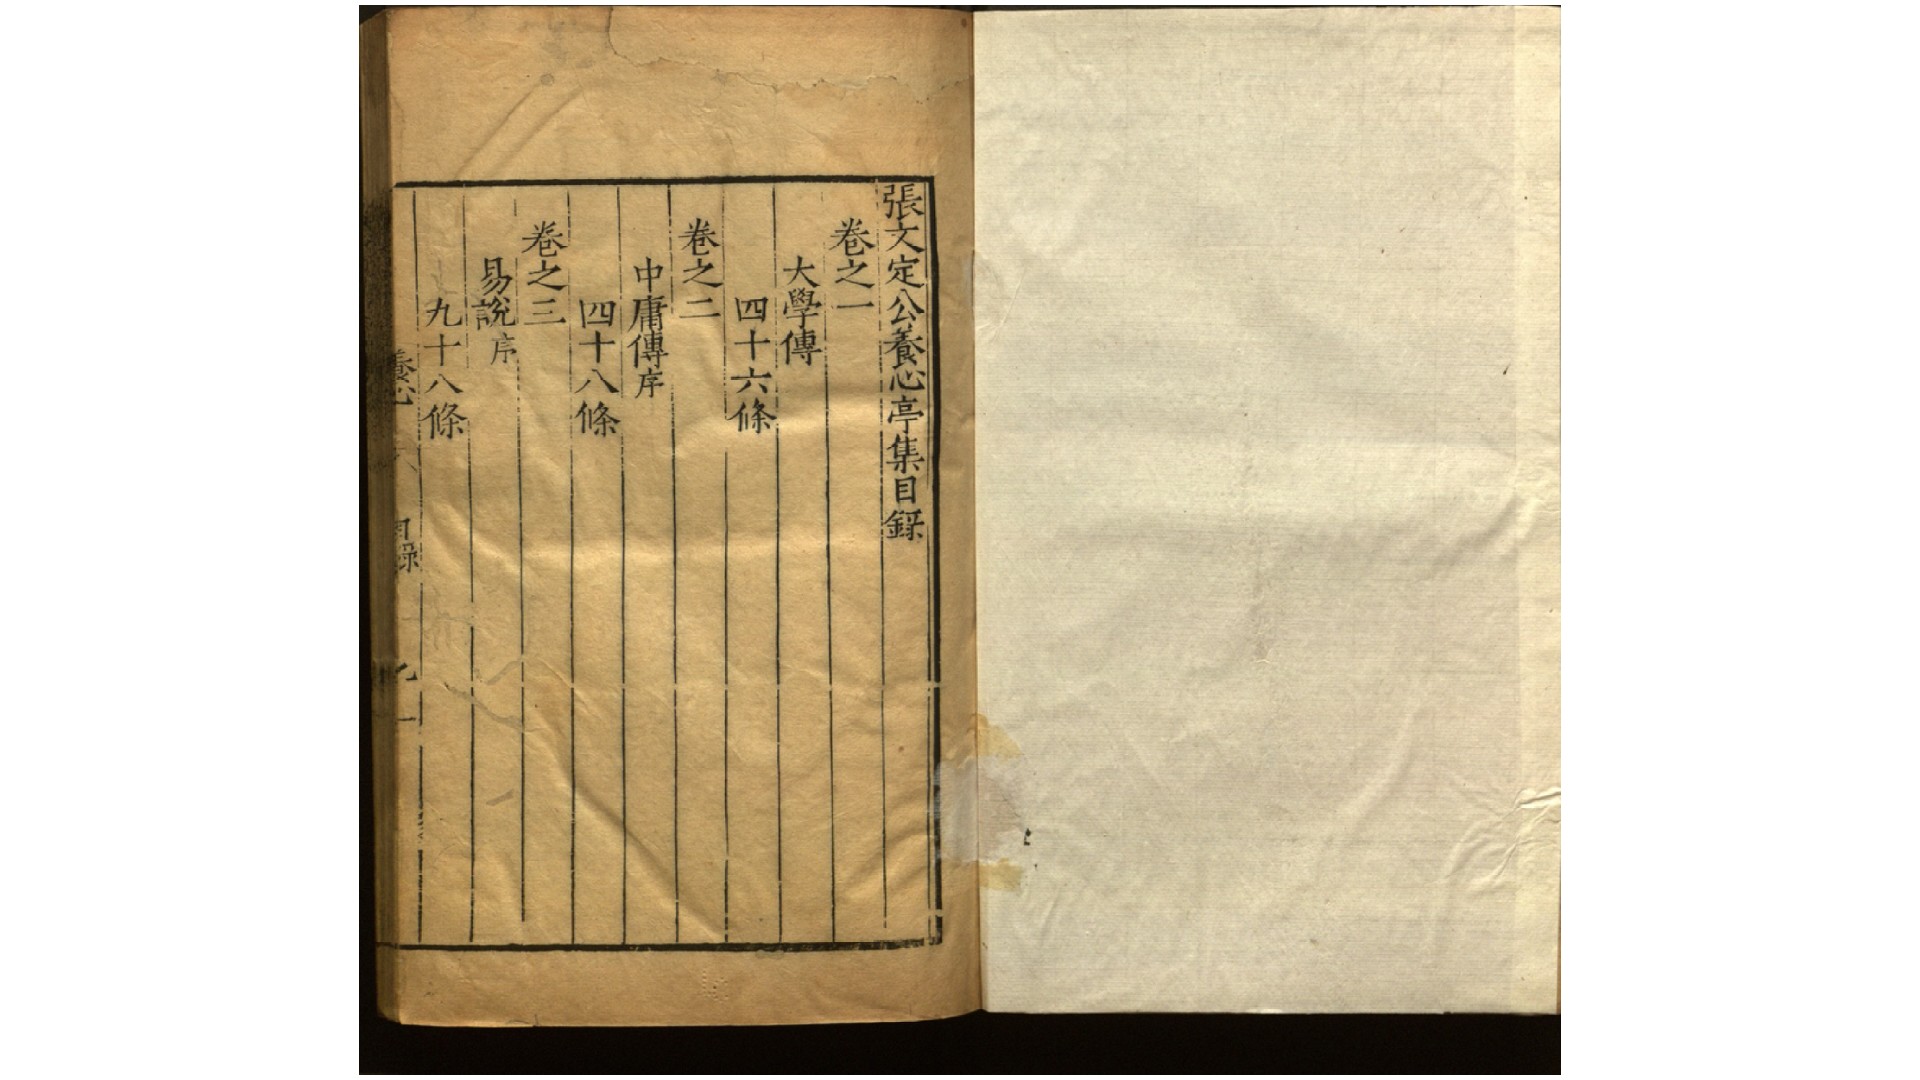 張文定公養心亭集目録
卷之一
大學傳
四十六條
卷之二
中庸傳序
四十八條
卷之三
易說序
九十八條
養心
目録